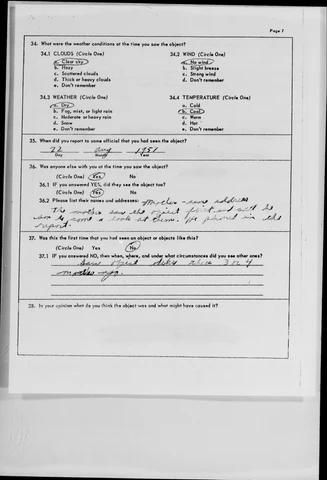 Page 7
34. What were the weather conditions at the time you saw the object?
34.1 CLOUDS (Circle One)
a. Clear sky
b. Hazy
c. Scattered clouds
d. Thick or heavy clouds
e. Don't remember
34.2 WIND (Circle One)
a. No wind
b. Slight breeze
c. Strong wind
d. Don't remember
34.3 WEATHER (Circle One)
a. Dry
b. Fog, mist, or light rain
c. Moderate or heavy rain
d. Snow
e. Don't remember
34.4 TEMPERATURE (Circle One)
a. Cold
b. Cool
c. Warm
d. Hot
e. Don't remember
35. When did you report to some official that you had seen the object?
22 Aug 1951
Day Month Year
36. Was anyone else with you at the time you saw the object?
(Circle One) Yes No
36.1 IF you answered YES, did they see the object too?
(Circle One) Yes No
36.2 Please list their names and addresses: Mother same address
The mother saw the object first and
to come a look at them. He phoned in the
report.
37. Was this the first time that you had seen an object or objects like this?
(Circle One) Yes No
37.1 IF you answered NO, then when, where, and under what circumstances did you see other ones?
Saw object like these 3 or 4
months ago.
38. In your opinion what do you think the object was and what might have caused it?